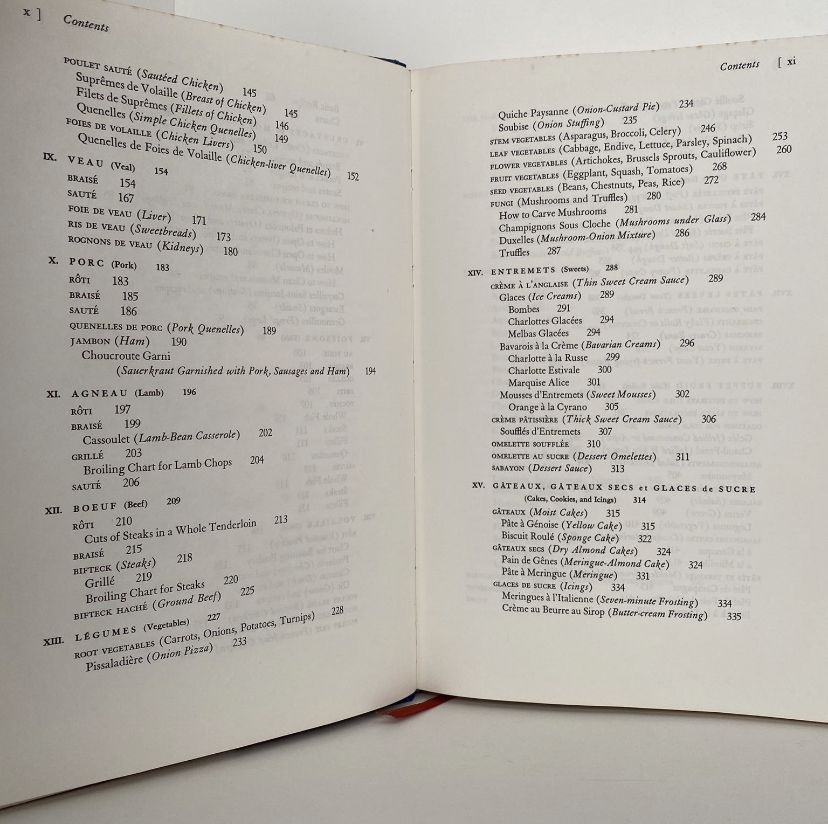 x ] Contents
POULET SAUTÉ (Sautéed Chicken) 145
Suprêmes de Volaille (Breast of Chicken) 145
Filets de Suprêmes (Fillets of Chicken) 146
Quenelles (Simple Chicken Quenelles) 149
FOIES DE VOLAILLE (Chicken Livers) 150
Quenelles de Foies de Volaille (Chicken-liver Quenelles) 152
IX. VEAU (Veal) 154
BRAISÉ 154
SAUTÉ 167
FOIE DE VEAU (Liver) 171
RIS DE VEAU (Sweetbreads) 173
ROGNONS DE VEAU (Kidneys) 180
X. PORC (Pork) 183
RÔTI 183
BRAISÉ 185
SAUTÉ 186
QUENELLES DE PORC (Pork Quenelles) 189
JAMBON (Ham) 190
Choucroute Garni
(Sauerkraut Garnished with Pork, Sausages and Ham) 194
XI. AGNEAU (Lamb) 196
RÔTI 197
BRAISÉ 199
Cassoulet (Lamb-Bean Casserole) 202
GRILLÉ 203
Broiling Chart for Lamb Chops 204
SAUTÉ 206
XII. BOEUF (Beef) 209
RÔTI 210
Cuts of Steaks in a Whole Tenderloin 213
BRAISÉ 215
BIFTECK (Steaks) 218
Grillé 219
Broiling Chart for Steaks 220
BIFTECK HACHÉ (Ground Beef) 225
XIII. LÉGUMES (Vegetables) 227
ROOT VEGETABLES (Carrots, Onions, Potatoes, Turnips) 228
Pissaladière (Onion Pizza) 233
Contents [ xi
Quiche Paysanne (Onion-Custard Pie) 234
Soubise (Onion Stuffing) 235
STEM VEGETABLES (Asparagus, Broccoli, Celery) 246
LEAF VEGETABLES (Cabbage, Endive, Lettuce, Parsley, Spinach) 253
FLOWER VEGETABLES (Artichokes, Brussels Sprouts, Cauliflower) 260
FRUIT VEGETABLES (Eggplant, Squash, Tomatoes) 268
SEED VEGETABLES (Beans, Chestnuts, Peas, Rice) 272
FUNGI (Mushrooms and Truffles) 280
How to Carve Mushrooms 281
Champignons Sous Cloche (Mushrooms under Glass) 284
Duxelles (Mushroom-Onion Mixture) 286
Truffles 287
XIV. ENTREMETS (Sweets) 288
CRÈME À L'ANGLAISE (Thin Sweet Cream Sauce) 289
Glaces (Ice Creams) 289
Bombes 291
Charlottes Glacées 294
Melbas Glacées 294
Bavarois à la Crème (Bavarian Creams) 296
Charlotte à la Russe 299
Charlotte Estivale 300
Marquise Alice 301
Mousses d'Entremets (Sweet Mousses) 302
Orange à la Cyrano 305
CRÈME PÂTISSIÈRE (Thick Sweet Cream Sauce) 306
Soufflés d'Entremets 307
OMELETTE SOUFFLÉE 310
OMELETTE AU SUCRE (Dessert Omelettes) 311
SABAYON (Dessert Sauce) 313
XV. GÂTEAUX, GÂTEAUX SECS et GLACES de SUCRE
(Cakes, Cookies, and Icings) 314
GÂTEAUX (Moist Cakes) 315
Pâte à Génoise (Yellow Cake) 315
Biscuit Roulé (Sponge Cake) 322
GÂTEAUX SECS (Dry Almond Cakes) 324
Pain de Gênes (Meringue-Almond Cake) 324
Pâte à Meringue (Meringue) 331
GLACES DE SUCRE (Icings) 334
Meringues à l'Italienne (Seven-minute Frosting) 334
Crème au Beurre au Sirop (Butter-cream Frosting) 335